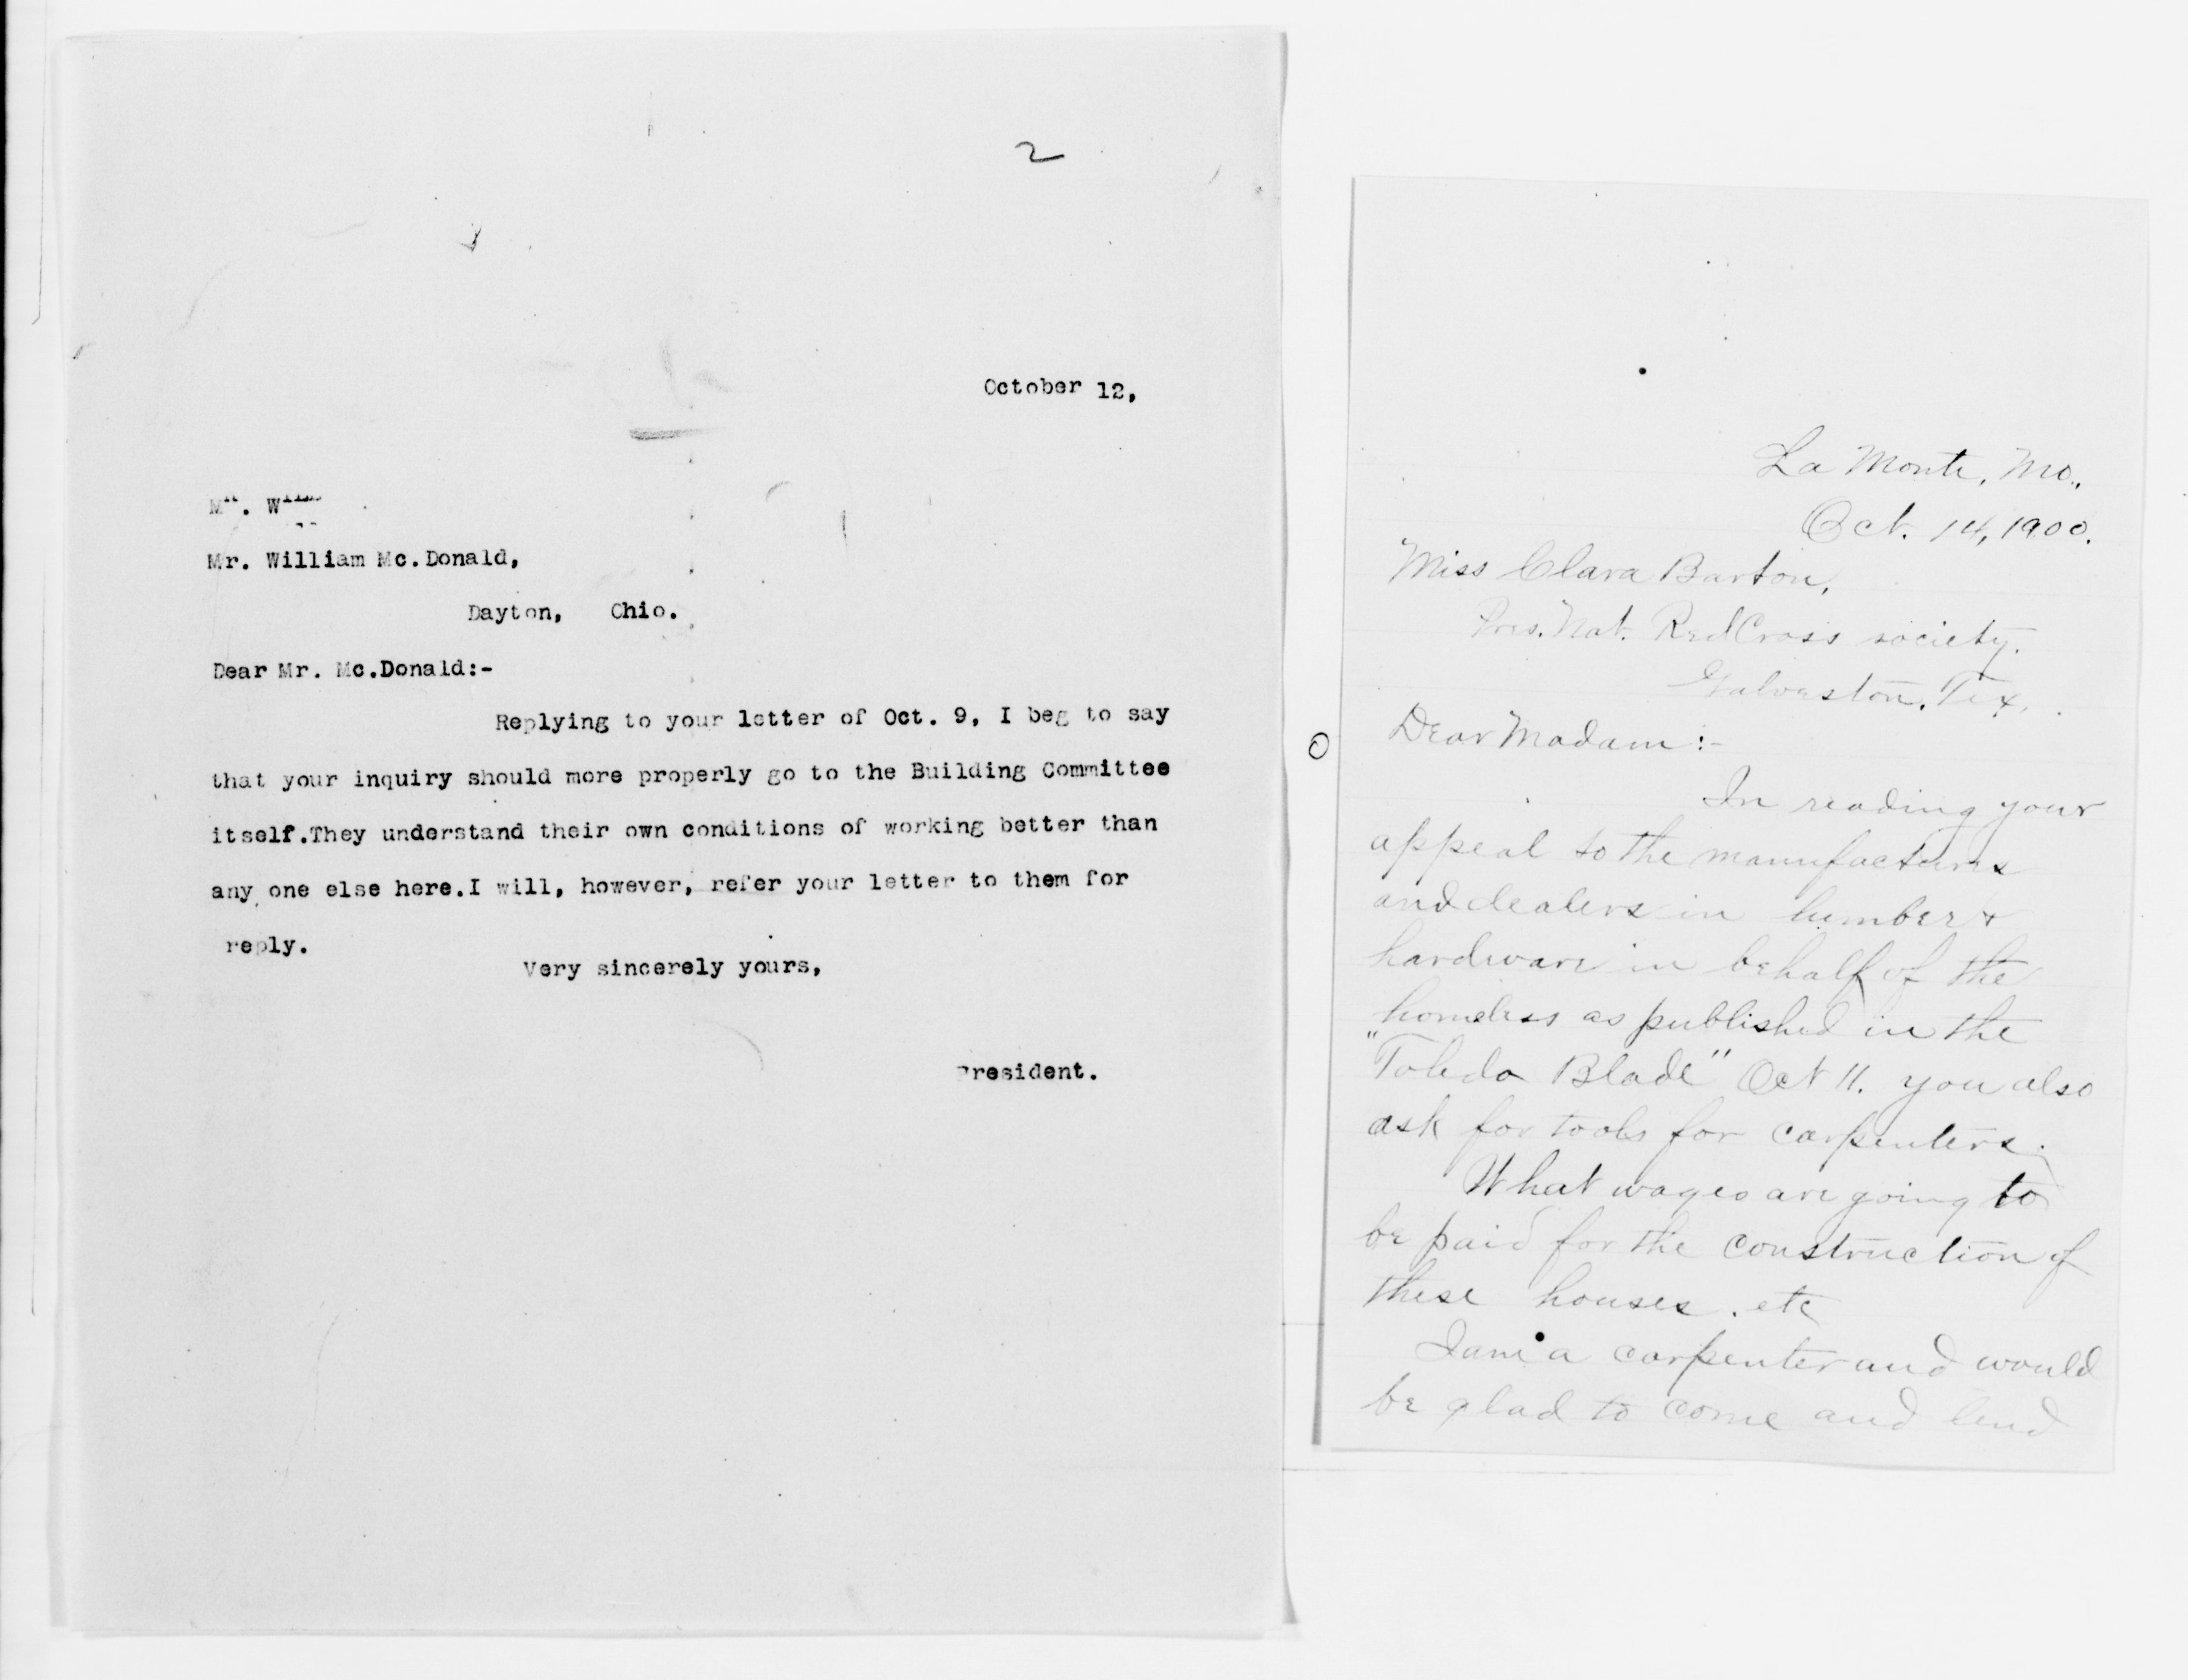 2
October 12,
Mr. W
Mr. William Mc.Donald,
Dayton, Ohio.
Dear Mr. Mc.Donald:-
Replying to your letter of Oct. 9, I beg to say
that your inquiry should more properly go to the Building Committee
itself.They understand their own conditions of working better than
any one else here.I will, however, refer your letter to them for
reply.
Very sincerely yours,
President.
La Monte, Mo.,
Oct. 14, 1900.
Miss Clara Barton,
Pres. Nat. Red Cross society.
Galveston, Tex.
Dear Madam :-
In reading your
appeal to the manufacturs
and dealers in lumber &
hardware in behalf of the
homeless as published in the
"Toledo Blade" Oct 11. you also
ask for tools for carpenters.
What wages are going to
be paid for the construction of
these houses. etc
I am a carpenter and would
be glad to come and lend